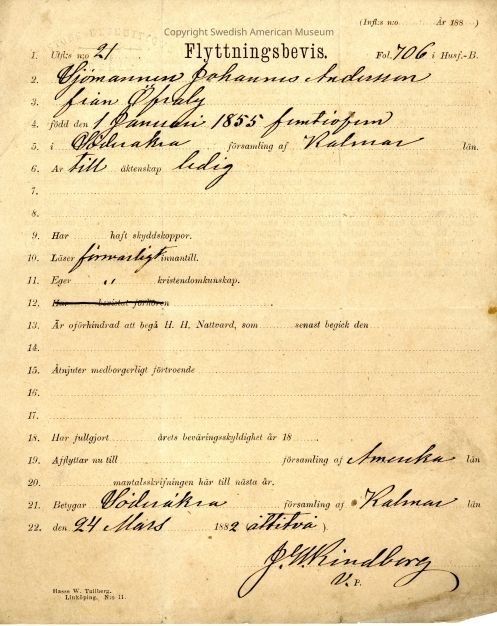 Copyright Swedish American Museum
(Infl:s n:o År 188 )
1. Utfl:s n:o 21 Flyttningsbevis. Fol. 706 i Husf.-B.
2. Sjömannen Johannes Andersson
3. från
4. född den 1 Januari 1855 femtiofem
5. i Söderåkra församling af Kalmar län.
6. Är till äktenskap ledig
7.
8.
9. Har haft skyddskoppor.
10. Läser försvarligt innantill.
11. Eger „ kristendomkunskap.
12. Har bevistat förhören
13. Är oförhindrad att begå H. H. Nattvard, som senast begick den
14.
15. Åtnjuter medborgerligt förtroende
16.
17.
18. Har fullgjort årets beväringsskyldighet år 18
19. Afflyttar nu till församling af Amerika län
20. mantalsskrifningen här till nästa år.
21. Betygar Söderåkra församling af Kalmar län
22. den 24 Mars 1882 åttitvå ).
V. P.
Hasse W. Tullberg.
Linköping, N:o 11.